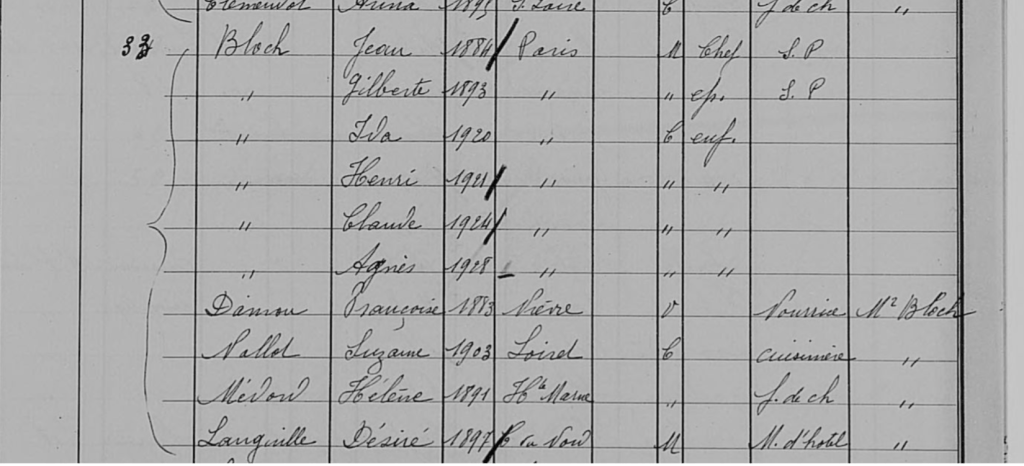 Anna 1895 C f. de ch "
33 Bloch Jean 1884 Paris M Chef S.P
" Gilberte 1893 " " ep. S.P
" Ida 1920 " C enf.
" Henri 1921 " " "
" Claude 1924 " " "
" Agnès 1928 " " "
Françoise 1883 Nièvre V Nourrice Mr Bloch
Vallot Suzanne 1903 Loiret C cuisinière "
Hélène 1891 Hte Marne " f. de ch "
Désiré 1897 C du Nord M M. d'hotel "